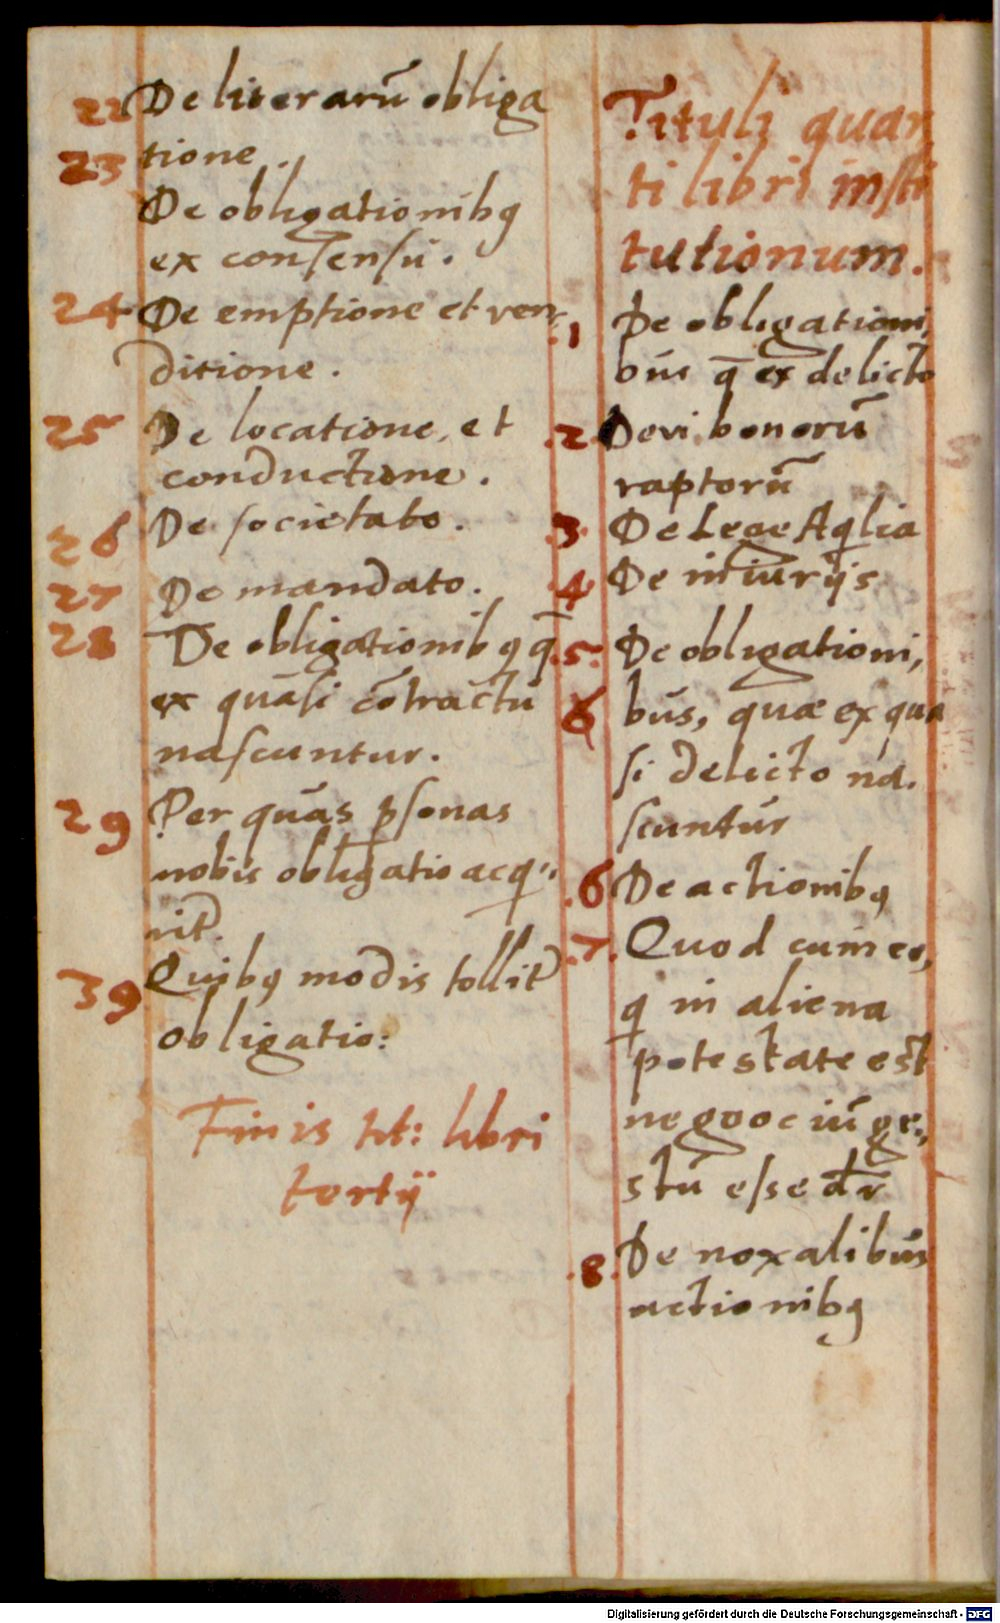 22 De literarū obliga
23 tione.
De obligationibꝯ
ex consensu.
24 De emptione et ven-
ditione.
25 De locatione, et
conductione.
26 De societate.
27 De mandato.
28 De obligationibꝯ q̄
ex quasi cōtractu
nascuntur.
29 Per quas ꝑsonas
nobis obligatio acq̇-
rit̃.
39 Quibꝯ modis tollit̃
obligatio:
Finis tit: libri
tertij
Tituli quar
ti libri insti
tutionum.
.1 De obligationi,
bus q̄ ex delicto
.2. De vi bonorū
raptorū
.3. De Lege Aq̇lia
.4 De iniurijs
.5. De obligationi,
6 bus, quæ ex qua
si delicto na.
scuntur
.6 De actionibꝯ
.7. Quod cum eo,
q̇ in aliena
potestate est
negoociū ge,
stū esse dr̄
.8. De noxalibus
actionibꝯ
Digitalisierung gefördert durch die Deutsche Forschungsgemeinschaft - DFG